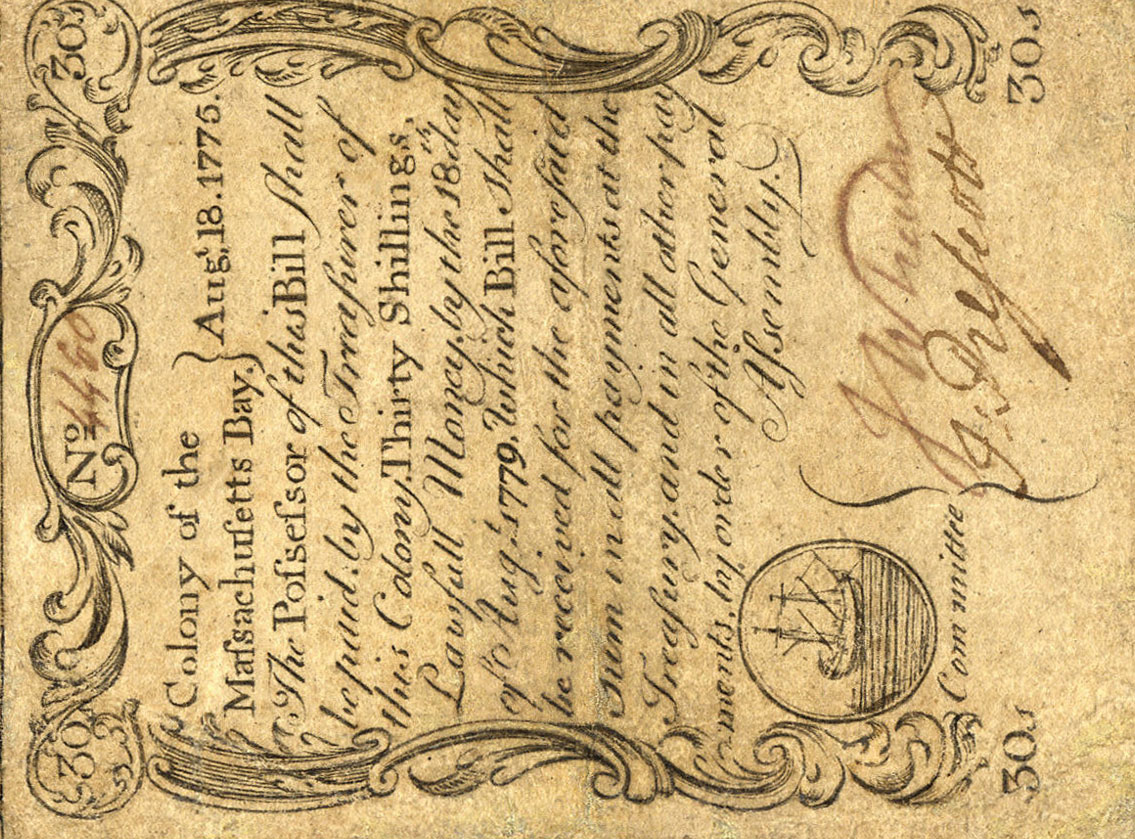 30s No 4460 30s
Colony of the
Maſsachuſetts Bay. } Augt. 18. 1775.
The Poſseſsor of this Bill ſhall
be paid. by the Treaſurer of
this Colony, Thirty Shillings,
Lawfull Money, by the 18th day
of Augt. 1779. Which Bill ſhall
be received for the aforeſaid
Sum in all payments at the
Treaſury, and in all other pay
ments, by order of the General
Aſsembly.
Committie
30.s 30.s